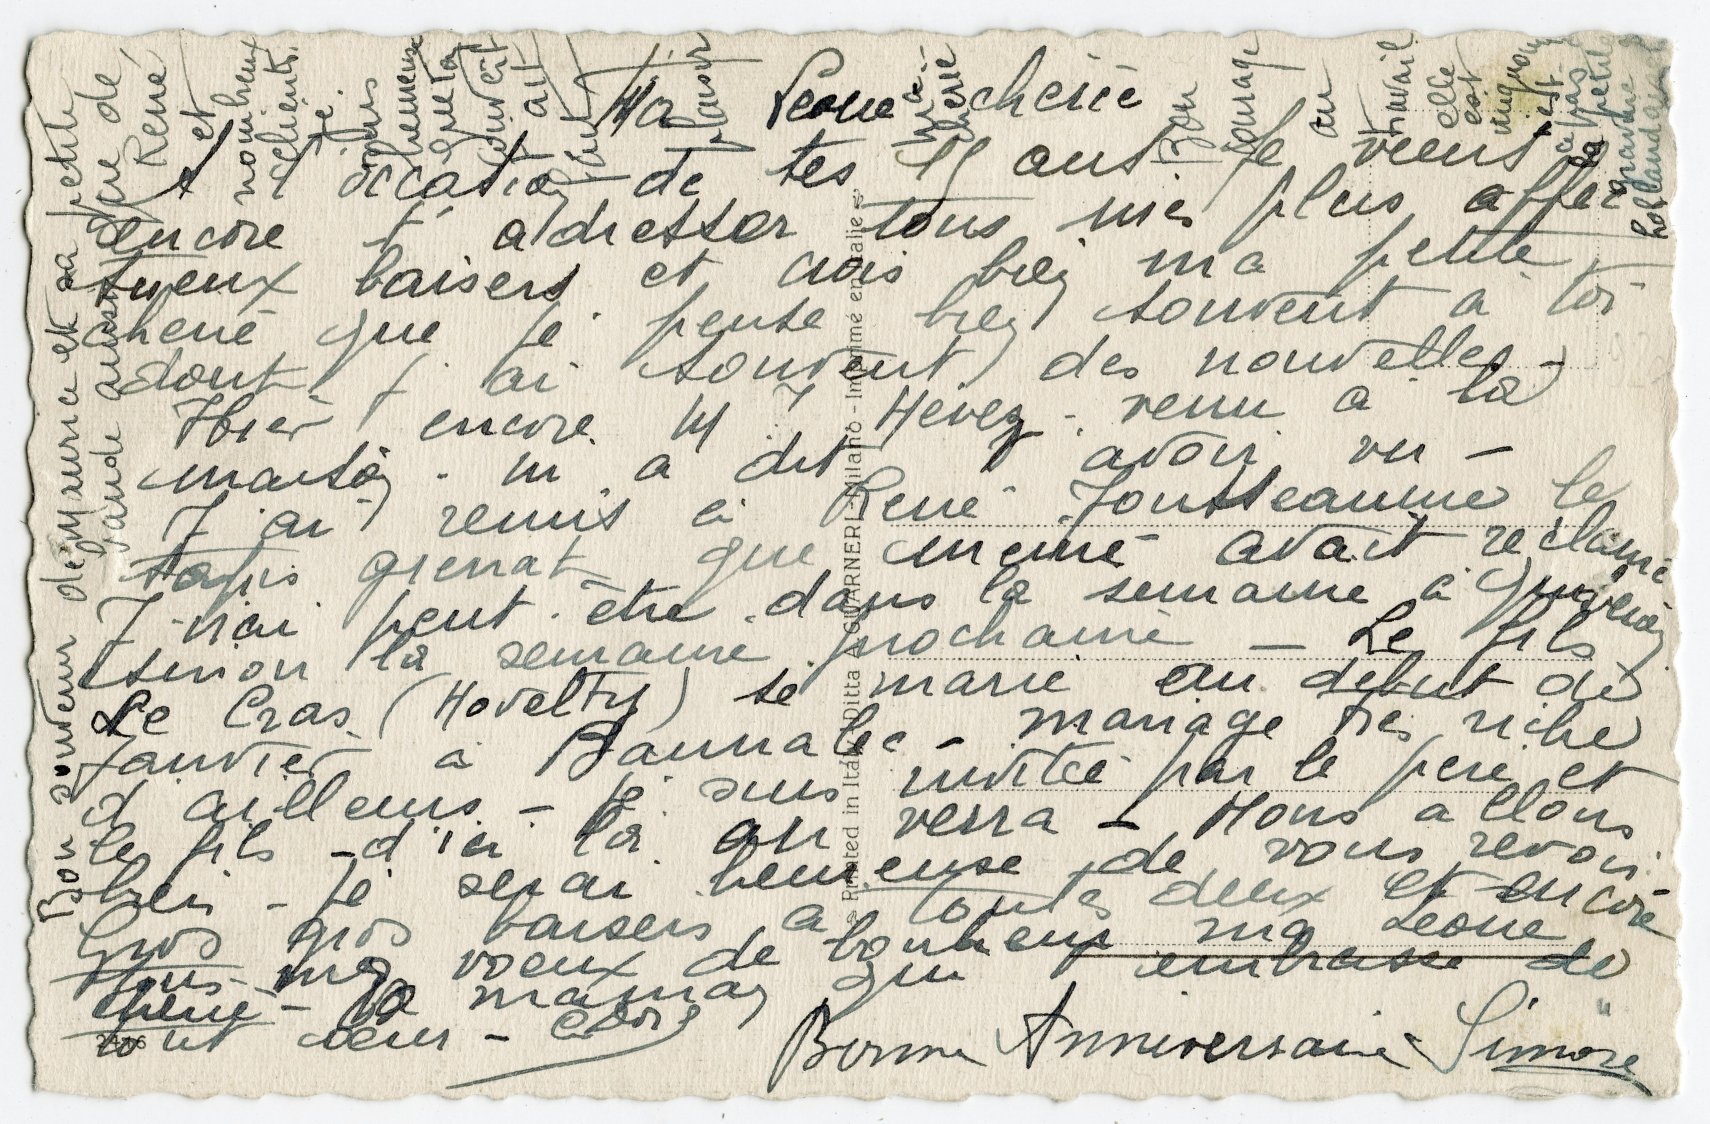 Ma Leone chérie
A l'occation de tes 15 ans je viens
encore t'adresser tous mes plus affec
tueux baisers et crois bien ma petite
cherie que je pense bien souvent à toi
dont j'ai souvent des nouvelles -
Hier encore M Hevez. venu à la
maison. m'a dit t'avoir vu -
J'ai remis à René Jousseaume le
tapis grenat que mémé avait réclamé
J'irai peut-être dans la semaine à Quimper
sinon la semaine prochaine - Le fils
Le Cras (Novelty) se marie au début de
Janvier à Bannalec - mariage très riche
d'ailleurs - je suis invitée par le père et
le fils - d'ici là on verra - Nous allons
bien - je serai heureuse de vous revoir
Gros gros baisers à toutes deux et encore
tous mes voeux de bonheur ma Leone
chérie - ta maman qui t'embrasse de
tout coeur -
Bonne Anniversaire Simone
Bon souvenir de Maurice et sa petite
que de
René
et
nombreux
clients.
heureuse
que ta
soit
ma
cherie
Bon
courage
au
travail
elle
est
pas
la petite
gravure
hollandaise
Printed in Italy Ditta A. GUARNERI - Milano - Imprimé en Italie